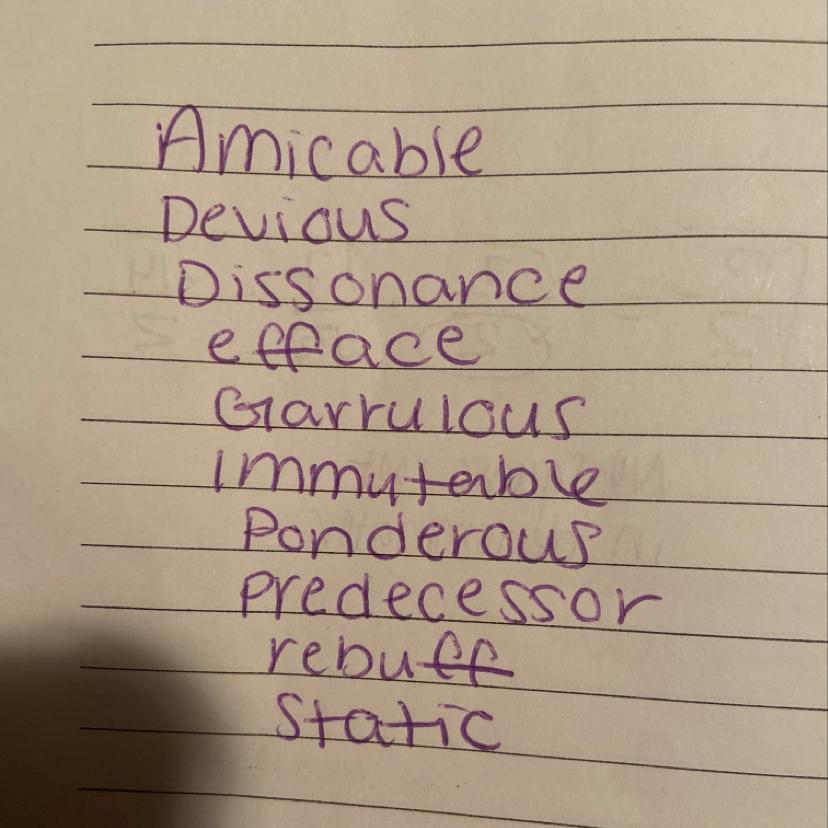 Amicable
Devious
Dissonance
efface
Garrulous
Immutable
Ponderous
predecessor
rebuff
static